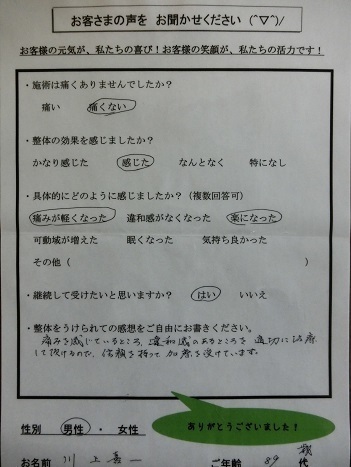 お客さまの声を お聞かせください (^▽^)/
お客様の元気が、私たちの喜び！お客様の笑顔が、私たちの活力です！
・施術は痛くありませんでしたか？
痛い 痛くない
・整体の効果を感じましたか？
かなり感じた 感じた なんとなく 特になし
・具体的にどのように感じましたか？（複数回答可）
痛みが軽くなった 違和感がなくなった 楽になった
可動域が増えた 眠くなった 気持ち良かった
その他（ ）
・継続して受けたいと思いますか？ はい いいえ
・整体をうけられての感想をご自由にお書きください。
痛みを感じているところ、違和感のあるところを 適切に治療
して頂けるので、信頼を持って 加療を受けています。
ありがとうございました！
性別 男性 ・ 女性
お名前 川上 一 ご年齢 89 歳 代